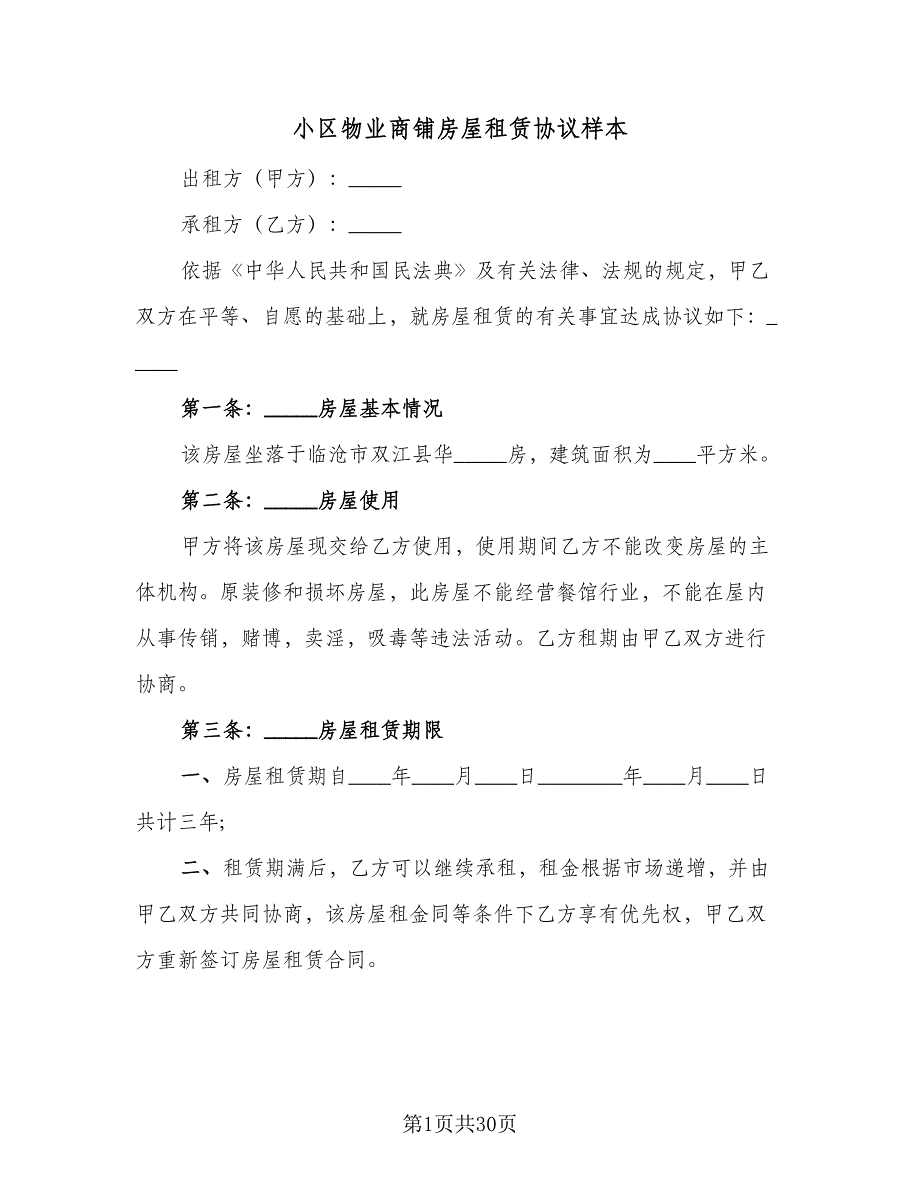 小区物业商铺房屋租赁协议样本
出租方（甲方）：_____
承租方（乙方）：_____
依据《中华人民共和国民法典》及有关法律、法规的规定，甲乙
双方在平等、自愿的基础上，就房屋租赁的有关事宜达成协议如下：_
____
第一条：_____房屋基本情况
该房屋坐落于临沧市双江县华_____房，建筑面积为____平方米。
第二条：_____房屋使用
甲方将该房屋现交给乙方使用，使用期间乙方不能改变房屋的主
体机构。原装修和损坏房屋，此房屋不能经营餐馆行业，不能在屋内
从事传销，赌博，卖淫，吸毒等违法活动。乙方租期由甲乙双方进行
协商。
第三条：_____房屋租赁期限
一、房屋租赁期自____年____月____日________年____月____日
共计三年;
二、租赁期满后，乙方可以继续承租，租金根据市场递增，并由
甲乙双方共同协商，该房屋租金同等条件下乙方享有优先权，甲乙双
方重新签订房屋租赁合同。
第1页共30页